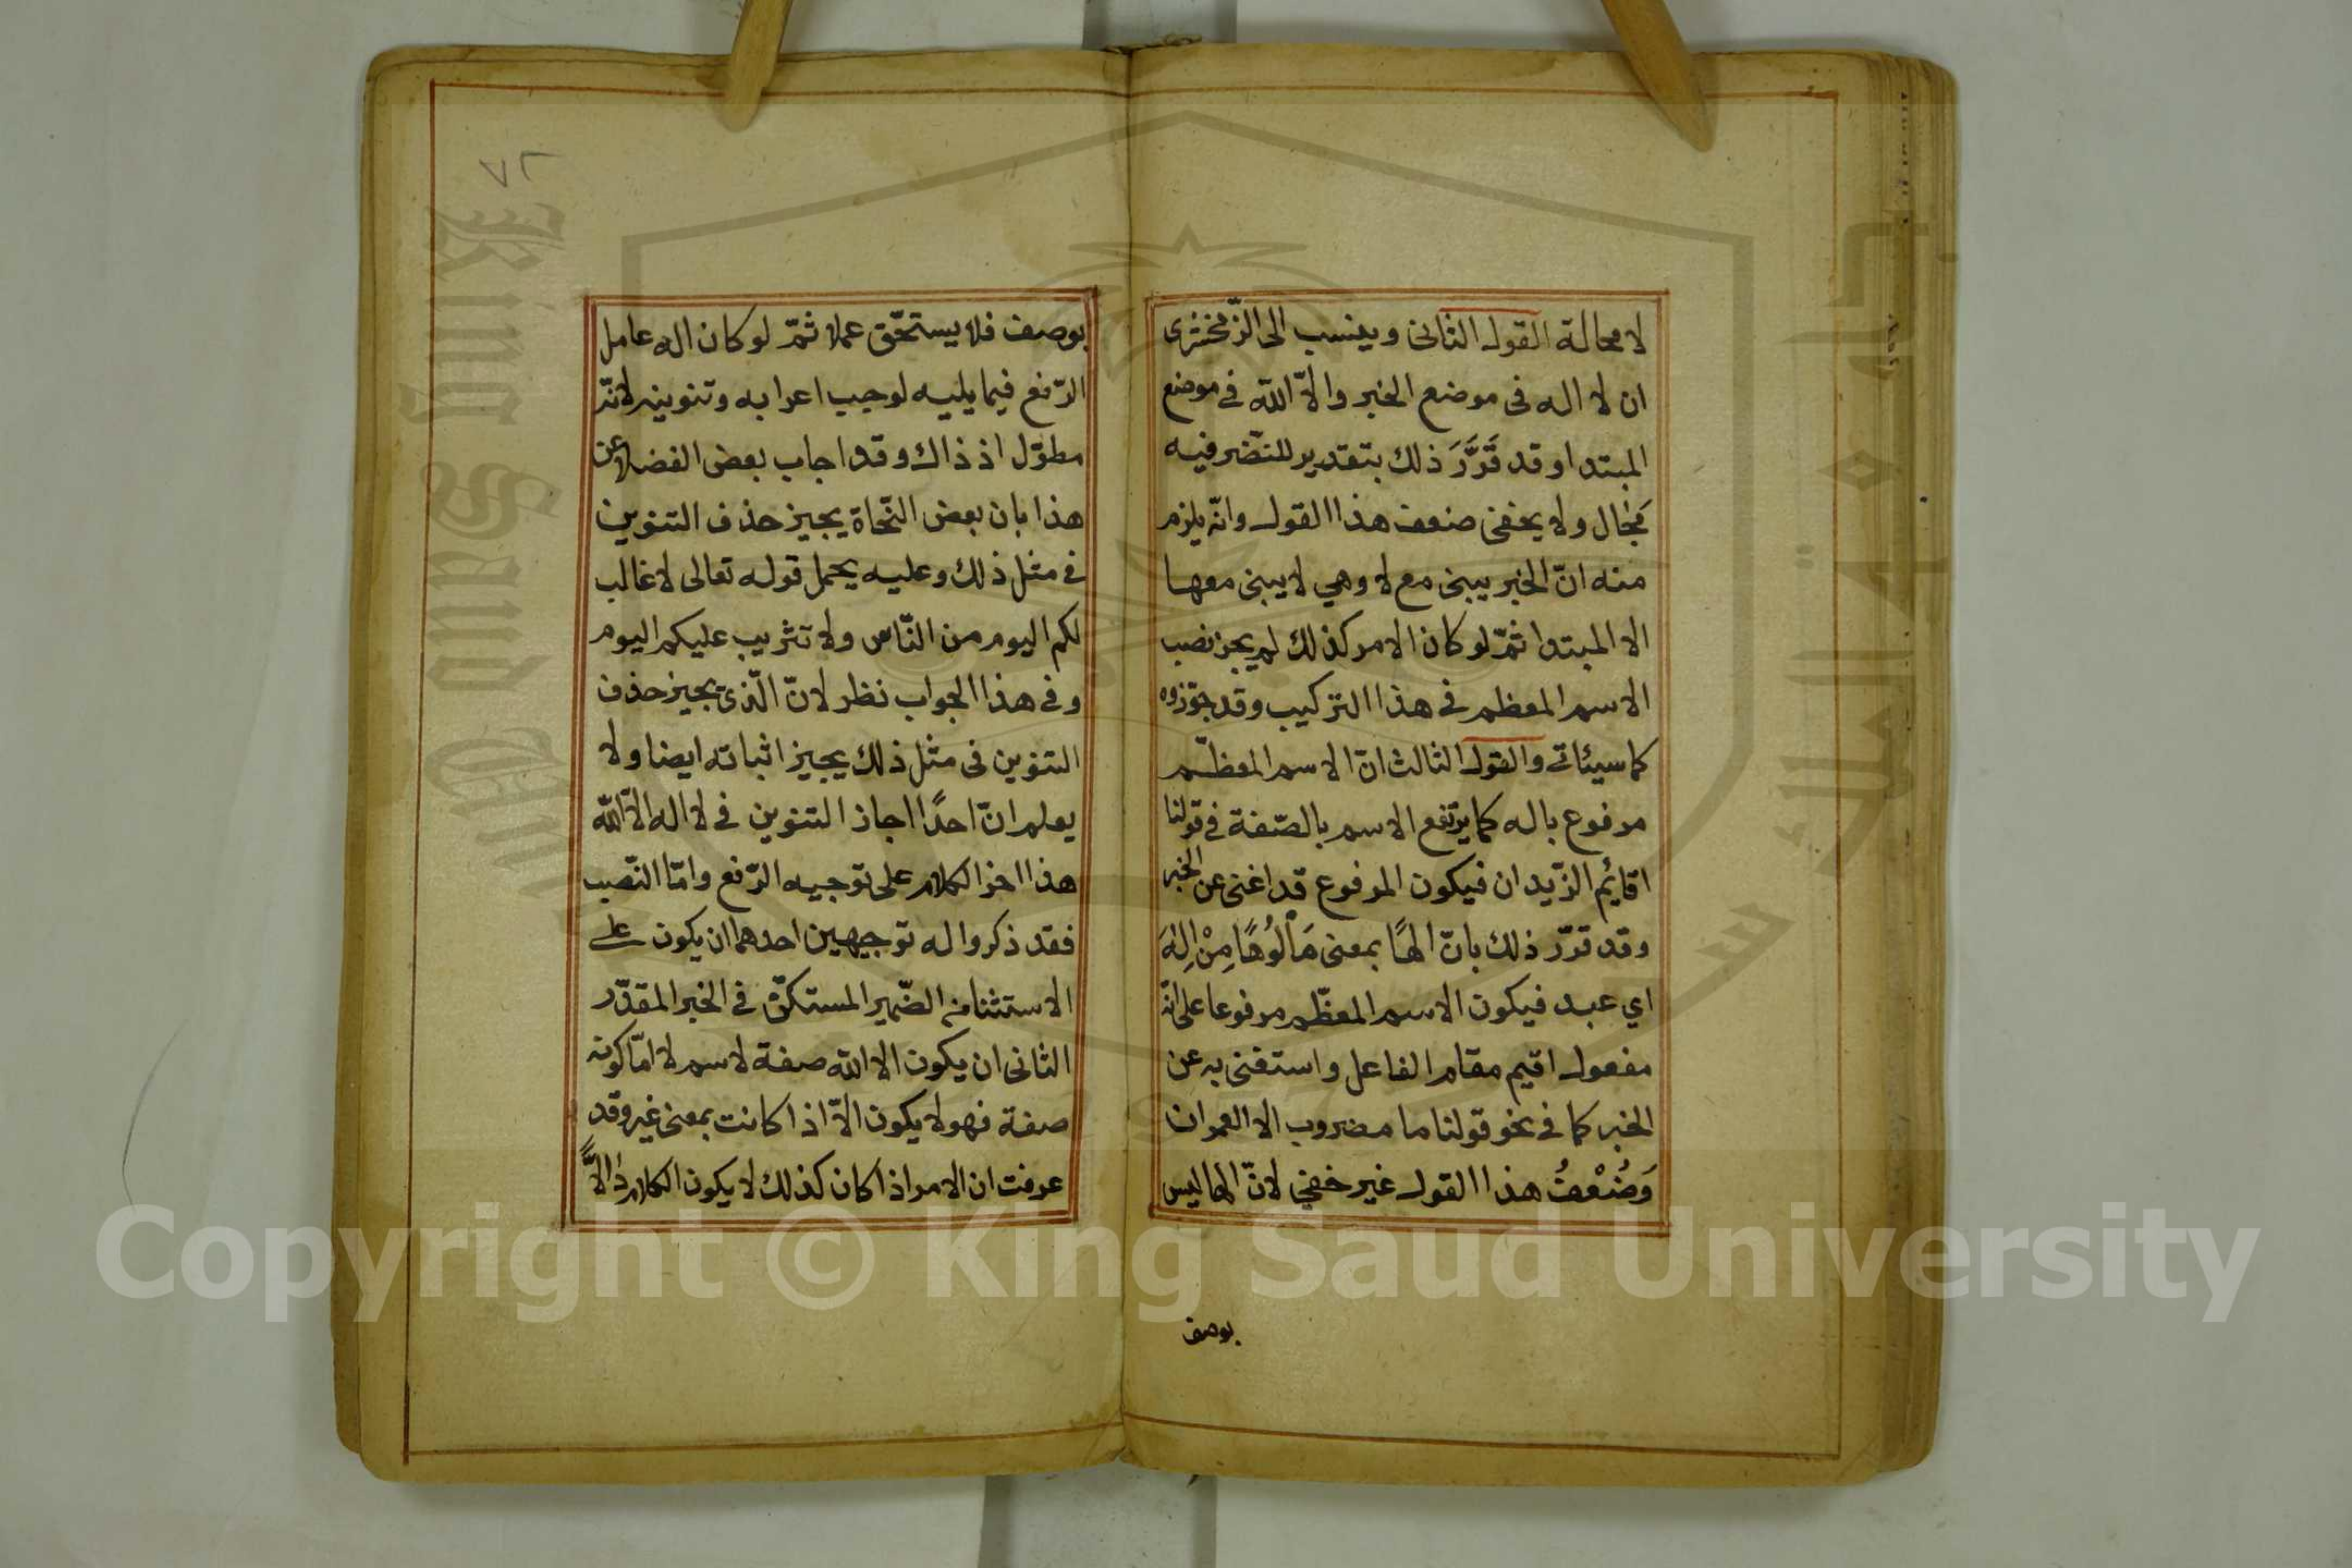 لا محالة القول الثانى وينسب الى الزّمخشرى
ان لا اله فى موضع الخبر والّا اللّه فى موضع
المبتدا وقد قَرَّرَ ذلك بتقدير للنّضر فيه
مجال ولا يخفى ضعف هذا القول وانّه يلزم
منه انّ الخبر يبنى مع لا وهي لا يبنى معها
الا المبتدا ثمّ لو كان الامر كذلك لم يجز نصب
الاسم المعظم فى هذا التركيب وقد جوّزوه
كما سيئاتى والقول الثالث انّ الاسم المعظّم
مرفوع باله كما يرتفع الاسم بالصّفة فى قولنا
اقائم الزّيدان فيكون المرفوع قد اغنى عن الخبر
وقد قرّر ذلك بانّ الهًا بمعنى مَألُوهًا مِنْ اِلٰهَ
اي عبد فيكون الاسم المعظّم مرفوعا على انّه
مفعول اقيم مقام الفاعل واستغنى به عن
الخبر كما فى نحو قولنا ما مضروب الا العمران
وَضُعْفُ هذا القول غير خفي لانّ الها ليس
بوصف
٧٢
بوصف فلا يستحّق عملا ثمّ لو كان اله عامل
الرّفع فيما يليه لوجب اعرابه وتنوينه لانّه
مطوّل اذ ذاك وقد اجاب بعض الفضلا عن
هذا بان بعض النّحاة يجيز حذف التنوين
فى مثل ذلك وعليه يحمل قوله تعالى لا غالب
لكم اليوم من النّاس ولا تثريب عليكم اليوم
وفى هذا الجواب نظر لانّ الّذى يجيز حذف
التنوين فى مثل ذلك يجيز اثباته ايضا ولا
يعلم انّ احدًا اجاز التنوين فى لا اله الّا اللّه
هذا اخر الكلام على توجيه الرّفع وامّا النّصب
فقد ذكروا له توجيهين احدهما ان يكون على
الاستثنا من الضّمير المستكنّ فى الخبر المقدّر
الثانى ان يكون الا اللّه صفة لاسم لا امّا كونه
صفة فهو لا يكون الّا اذا كانت بمعنى غير وقد
عرفت ان الامر اذا كان كذلك لا يكون الكلام دالاًّ
Copyright © King Saud University